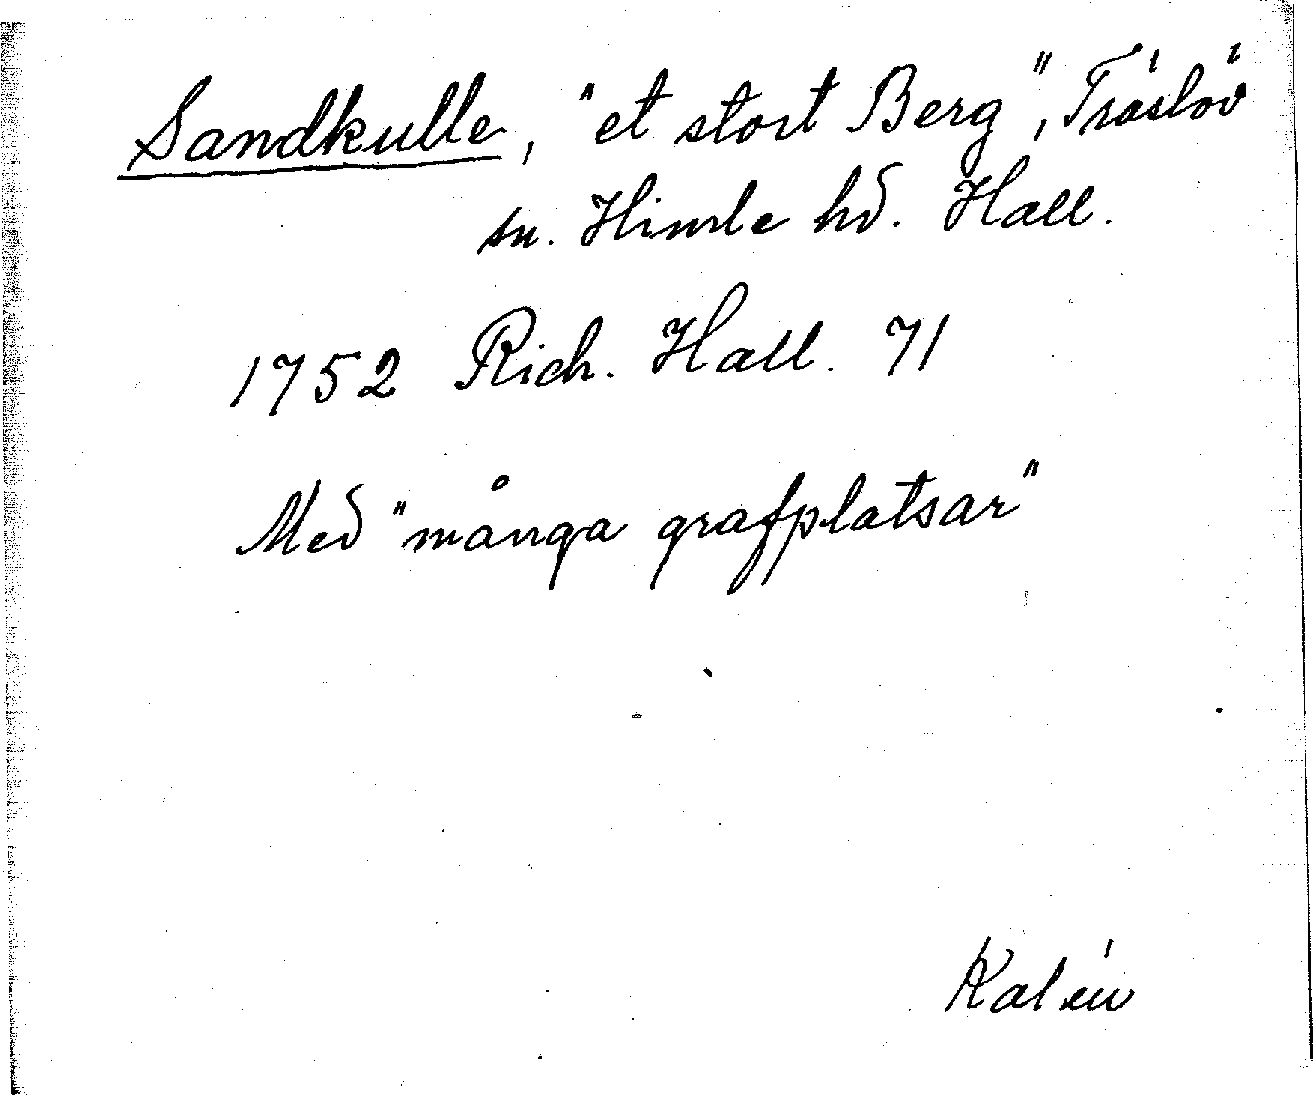 Sandkulle, "et stort Berg", Träslöv
sn. Himle hd. Hall.
1752 Rich. Hall. 71
Med "många grafplatsar"
Kalén